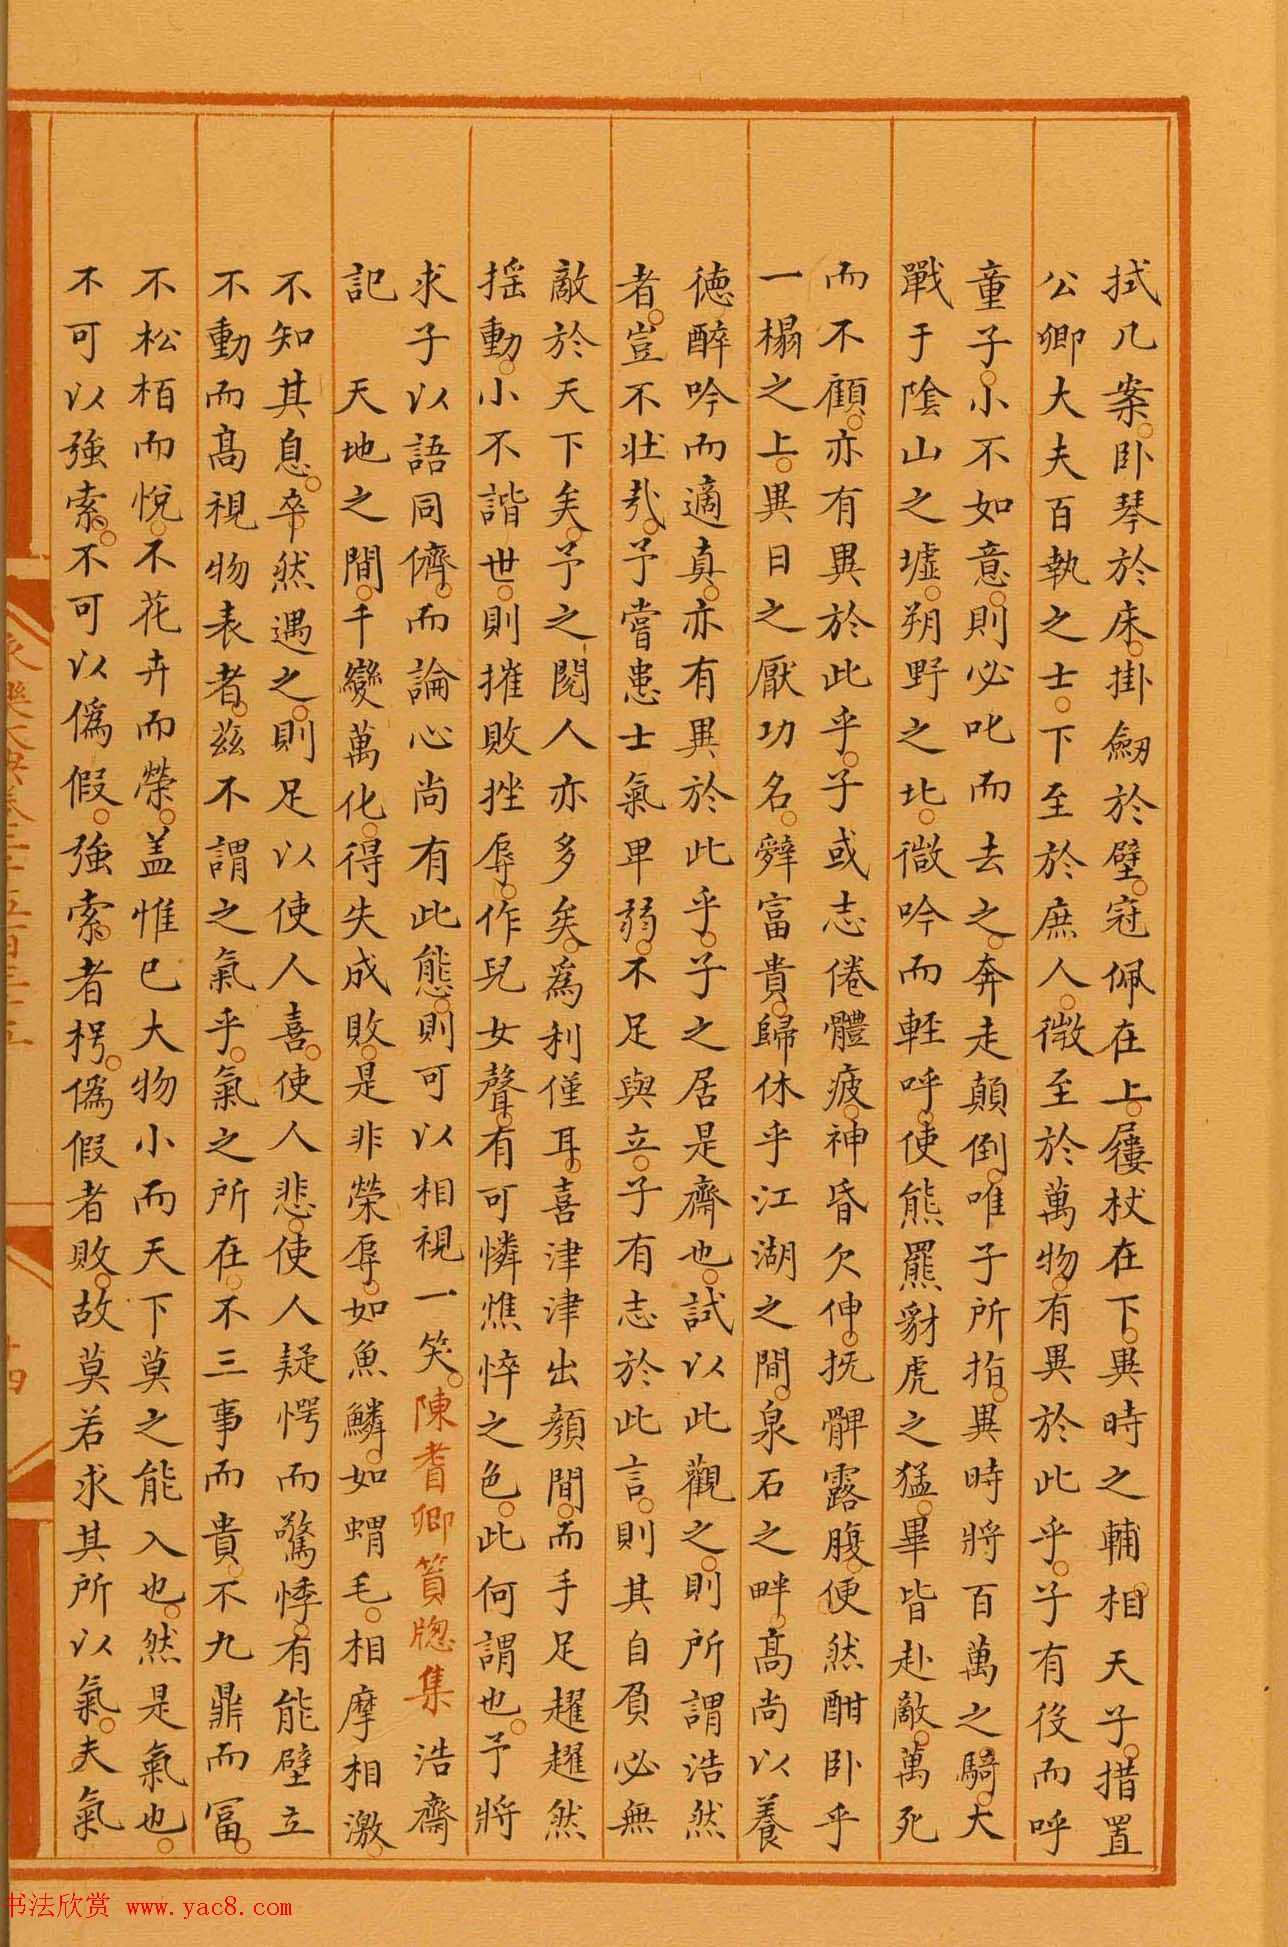 拭几案。卧琴於床。掛劒於壁。冠佩在上。屨杖在下。異時之輔相天子。措置
公卿大夫百執之士。下至於庶人。微至於萬物。有異於此乎。子有役而呼
童子。小不如意。則必叱而去之。奔走顛倒。唯子所指。異時將百萬之騎。大
戰于陰山之墟。朔野之北。微吟而輕呼。使熊羆豺虎之猛。畢皆赴敵。萬死
而不顧。亦有異於此乎。子或志倦體疲。神昏欠伸。抚髀露腹。便然酣卧乎
一榻之上。異日之厭功名。辭富貴。歸休乎江湖之間。泉石之畔。高尚以養
德。醉吟而適真。亦有異於此乎。子之居是齋也。試以此觀之。則所謂浩然
者。豈不壮哉。予嘗患士氣卑弱。不足與立。子有志於此言。則其自負必無
敵於天下矣。予之閱人亦多矣。為利僅耳。喜津津出顏間。而手足趯趯然
揺動。小不諧世。則摧敗挫辱。作兒女聲。有可憐憔悴之色。此何謂也。予將
求子以語同儕。而論心尚有此態。則可以相視一笑。陳耆卿篔牎集 浩齋
記 天地之間。千變萬化。得失成敗。是非榮辱。如魚鱗。如蝟毛。相摩相激。
不知其息。卒然遇之。則足以使人喜。使人悲。使人疑愕而驚悸。有能壁立
不動而高視物表者。茲不謂之氣乎。氣之所在。不三事而貴。不九鼎而冨。
不松栢而悅。不花卉而榮。盖惟巳大物小而天下莫之能入也。然是氣也。
不可以強索。不可以偽假。強索者枵。偽假者敗。故莫若求其所以氣。夫氣
书法欣赏 www.yac8.com